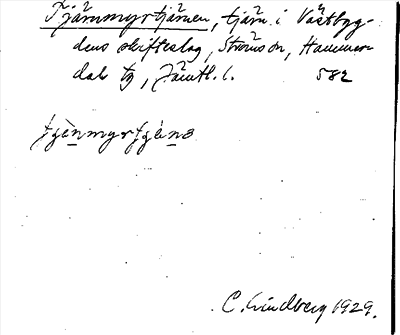 Tjärnmyrtjärnen, tjärn i Västbyg-
dens skifteslag, Strömsön, Hammer-
dals tg, Jämtl. l. 582
C. Lindberg 1929.